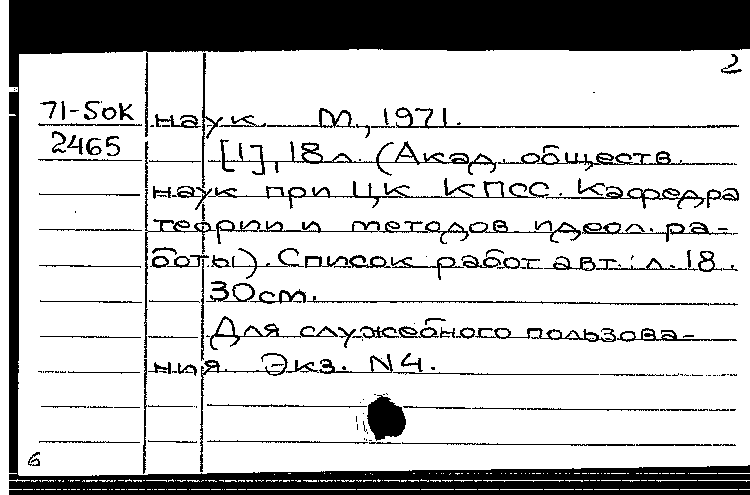 2
71-5ок наук. М., 1971.
2465 [1], 18 л. (Акад. обществ.
наук при ЦК КПСС. Кафедра
теории и методов идеол. ра-
боты). Список работ авт.: л. 18.
30см.
Для служебного пользова-
ния. Экз. N4.
6